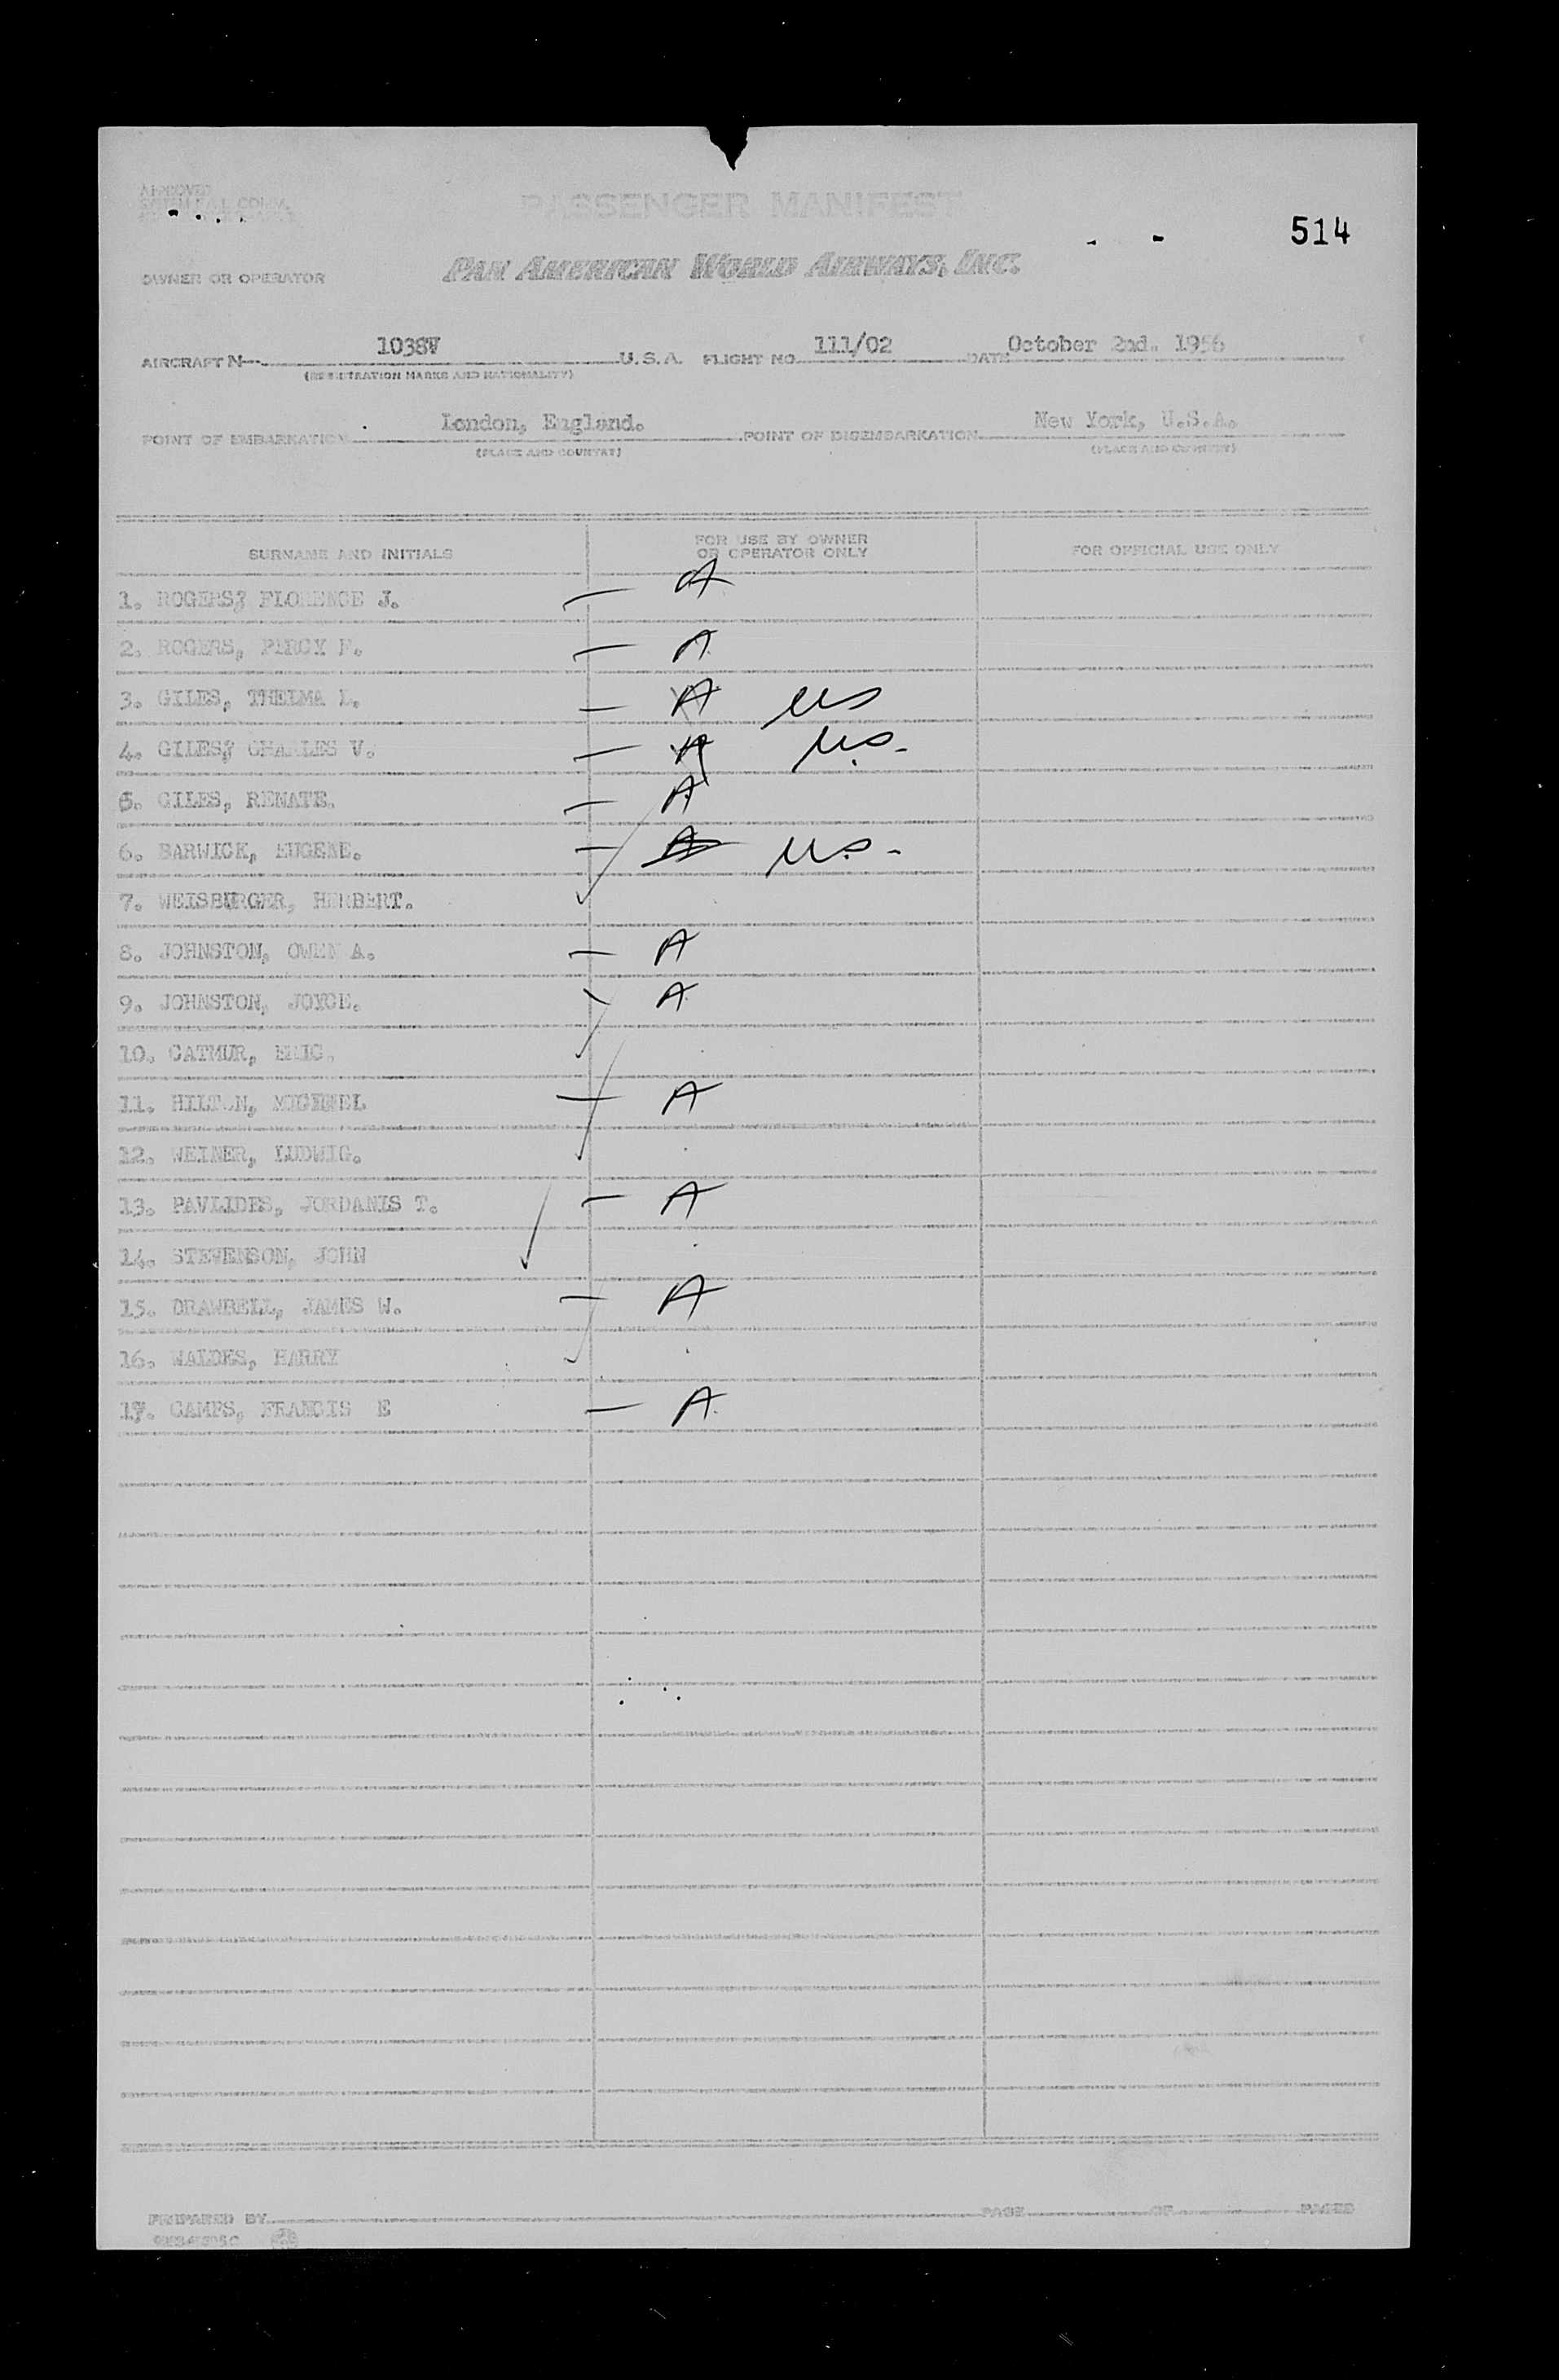 APPROVED
PASSENGER MANIFEST
514
OWNER OR OPERATOR PAN AMERICAN WORLD AIRWAYS, INC.
AIRCRAFT N 1038V U.S.A. FLIGHT NO. 111/02 DATE October 2nd. 1956
(REGISTRATION MARKS AND NATIONALITY)
POINT OF EMBARKATION London, England. POINT OF DISEMBARKATION New York, U.S.A.
(PLACE AND COUNTRY) (PLACE AND COUNTRY)
SURNAME AND INITIALS FOR USE BY OWNER OR OPERATOR ONLY FOR OFFICIAL USE ONLY
1. ROGERS; FLORENCE J. — A
2. ROGERS, PERCY F. — A
3. GILES, THELMA L. — A us
4. GILES; CHARLES V. — A us.
5. GILES, RENATE. — A
6. BARWICK, EUGENE. — A us.
7. WEISBURGER, HERBERT.
8. JOHNSTON, OWEN A. — A
9. JOHNSTON, JOYCE. A
10. CATMUR, ERIC.
11. HILTON, MICHAEL — A
12. WEINER, LUDWIG.
13. PAVLIDES, JORDANIS T. — A
14. STEVENSON, JOHN
15. DRAWBELL, JAMES W. — A
16. WALDES, HARRY
17. CAMPS, FRANCIS E — A
PREPARED BY PAGE OF PAGES